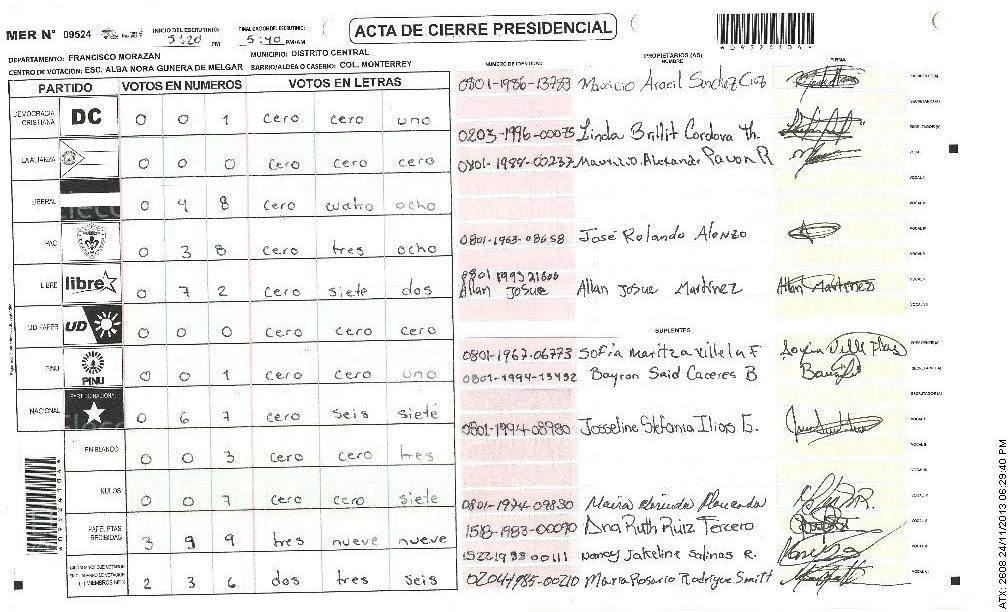 MER N° 09524
INICIO DEL ESCRUTINIO: 5:20 PM
FINALIZACION DEL ESCRUTINIO: 5:40 PM/AM
ACTA DE CIERRE PRESIDENCIAL
DEPARTAMENTO: FRANCISCO MORAZAN
MUNICIPIO: DISTRITO CENTRAL
CENTRO DE VOTACION: ESC. ALBA NORA GUNERA DE MELGAR
BARRIO/ALDEA O CASERIO: COL. MONTERREY
PARTIDO VOTOS EN NUMEROS VOTOS EN LETRAS
DEMOCRACIA CRISTIANA DC 0 0 1 cero cero uno
LA ALIANZA 0 0 0 cero cero cero
LIBERAL 0 4 8 cero cuatro ocho
PAC 0 3 8 cero tres ocho
LIBRE libre 0 7 2 cero siete dos
UD FAPER UD 0 0 0 cero cero cero
PINU PINU 0 0 1 cero cero uno
NACIONAL PARTIDO NACIONAL 0 6 7 cero seis siete
EN BLANCO 0 0 3 cero cero tres
NULOS 0 0 7 cero cero siete
PAPELETAS RECIBIDAS 3 9 9 tres nueve nueve
2 3 6 dos tres seis
NUMERO DE IDENTIDAD
PROPIETARIOS (AS)
NOMBRE
FIRMA
0801-1986-13783
0203-1996-00075 Linda Brillit Cordova Th.
0801-1988-00237 Mauricio Alexander Pavon R
0801-1963-08658 José Rolando Alonzo
0801 1993 21606
Allan Josue Allan Josue Martinez Allan Martinez
SUPLENTES
0801-1967-06773 Sofia Maritza Villela F
0801-1994-15492 Bayron Said Caceres B
0801-1994-08980 Josseline Stefania
0801-1974-09830
1518-1983-00090 Ana Ruth Ruiz Tercero
1522198800111 Nancy Jakeline Salinas R.
Maria Rosario Rodrigue Smitt
ATX 2608 24/11/2013 06:29:40 PM